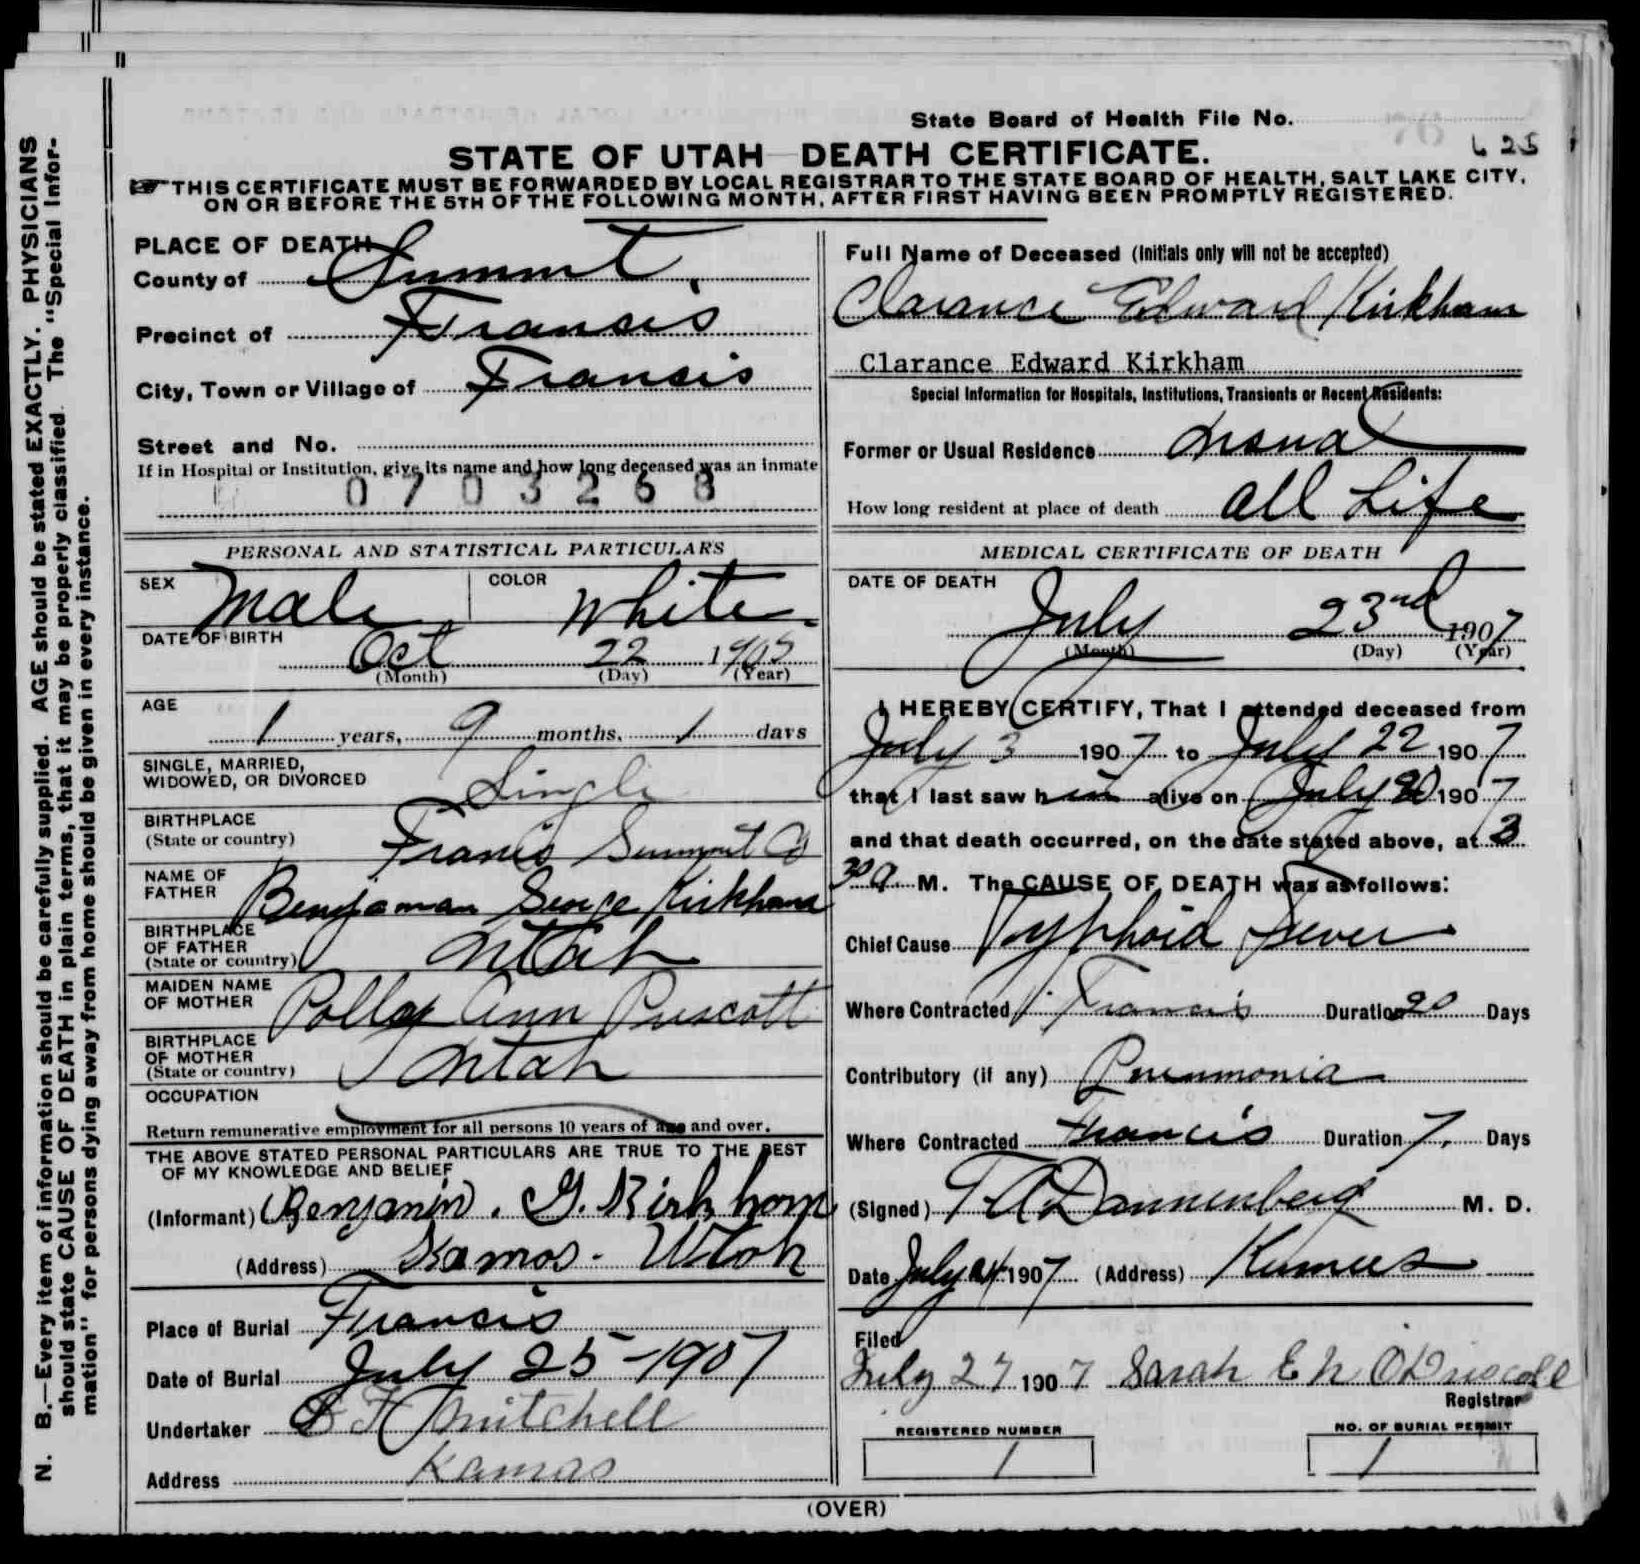 State Board of Health File No.
625
STATE OF UTAH—DEATH CERTIFICATE.
THIS CERTIFICATE MUST BE FORWARDED BY LOCAL REGISTRAR TO THE STATE BOARD OF HEALTH, SALT LAKE CITY,
ON OR BEFORE THE 5TH OF THE FOLLOWING MONTH, AFTER FIRST HAVING BEEN PROMPTLY REGISTERED.
N. B.—Every item of information should be carefully supplied. AGE should be stated EXACTLY. PHYSICIANS
should state CAUSE OF DEATH in plain terms, that it may be properly classified. The "Special Infor-
mation" for persons dying away from home should be given in every instance.
PLACE OF DEATH
County of Summit
Precinct of Francis
City, Town or Village of Francis
Street and No.
If in Hospital or Institution, give its name and how long deceased was an inmate
0703268
PERSONAL AND STATISTICAL PARTICULARS
SEX Male COLOR White
DATE OF BIRTH
Oct 22 1905
(Month) (Day) (Year)
AGE
1 years, 9 months, 1 days
SINGLE, MARRIED,
WIDOWED, OR DIVORCED Single
BIRTHPLACE
(State or country) Francis Summit Co
NAME OF
FATHER Benjaman George Kirkham
BIRTHPLACE
OF FATHER
(State or country) Utah
MAIDEN NAME
OF MOTHER Polley Ann Prescott
BIRTHPLACE
OF MOTHER
(State or country) Utah
OCCUPATION
Return remunerative employment for all persons 10 years of age and over.
THE ABOVE STATED PERSONAL PARTICULARS ARE TRUE TO THE BEST
OF MY KNOWLEDGE AND BELIEF
(Informant) Benjamin. G. Kirkham
(Address) Kamas - Utah
Place of Burial Francis
Date of Burial July 25-1907
Undertaker Mitchell
Address Kamas
Full Name of Deceased (Initials only will not be accepted)
Clarance Edward Kirkham
Clarance Edward Kirkham
Special Information for Hospitals, Institutions, Transients or Recent Residents:
Former or Usual Residence
How long resident at place of death all Life
MEDICAL CERTIFICATE OF DEATH
DATE OF DEATH
July 23nd 1907
(Month) (Day) (Year)
I HEREBY CERTIFY, That I attended deceased from
July 3 1907 to July 22 1907
that I last saw him alive on July 1907
and that death occurred, on the date stated above, at 3
30 a M. The CAUSE OF DEATH was as follows:
Chief Cause Typhoid Fever
Where Contracted Francis Duration 20 Days
Contributory (if any) Pneumonia
Where Contracted Francis Duration 7. Days
(Signed) T A Dannenberg M. D.
Date July 24 1907 (Address) Kamas
Filed
July 27 1907 Sarah E N O'Driscoll
Registrar
REGISTERED NUMBER
1
NO. OF BURIAL PERMIT
1
(OVER)